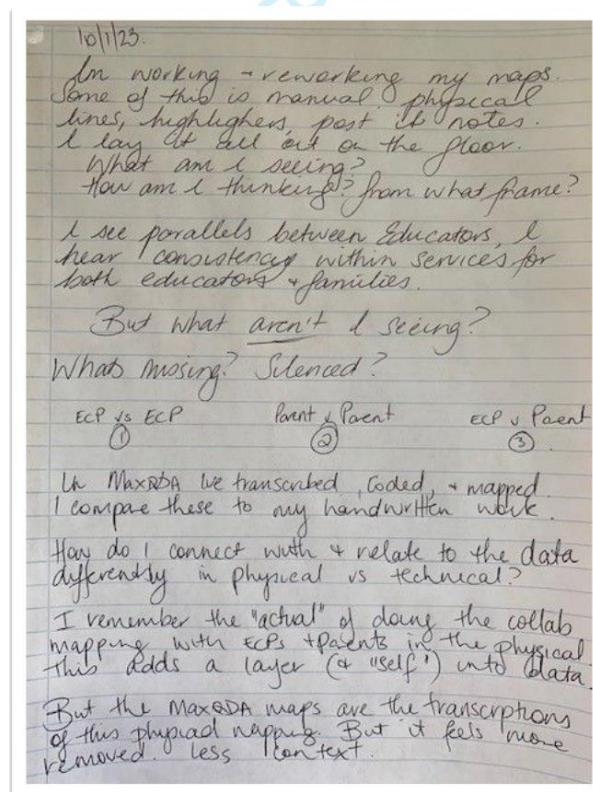 10/1/23.
Im working + reworking my maps.
Some of this is manual, physical
lines, highlighers, post it notes.
I lay it all out on the floor.
What am I seeing?
How am I thinking? from what frame?
I see parallels between Educators, I
hear consistency within services for
both educators + families.
But what aren't I seeing?
Whats missing? Silenced?
ECP vs ECP Parent v Parent ECP v Parent
① ② ③
In MaxQDA Ive transcribed, coded, + mapped.
I compare these to my handwritten work.
How do I connect with + relate to the data
differently in physical vs technical?
I remember the "actual" of doing the collab
mapping with ECPs + parents in the physical
this adds a layer (+ "self") into data.
But the MaxQDA maps are the transcrptions
of this physical mapping. But it feels more
removed. less context.